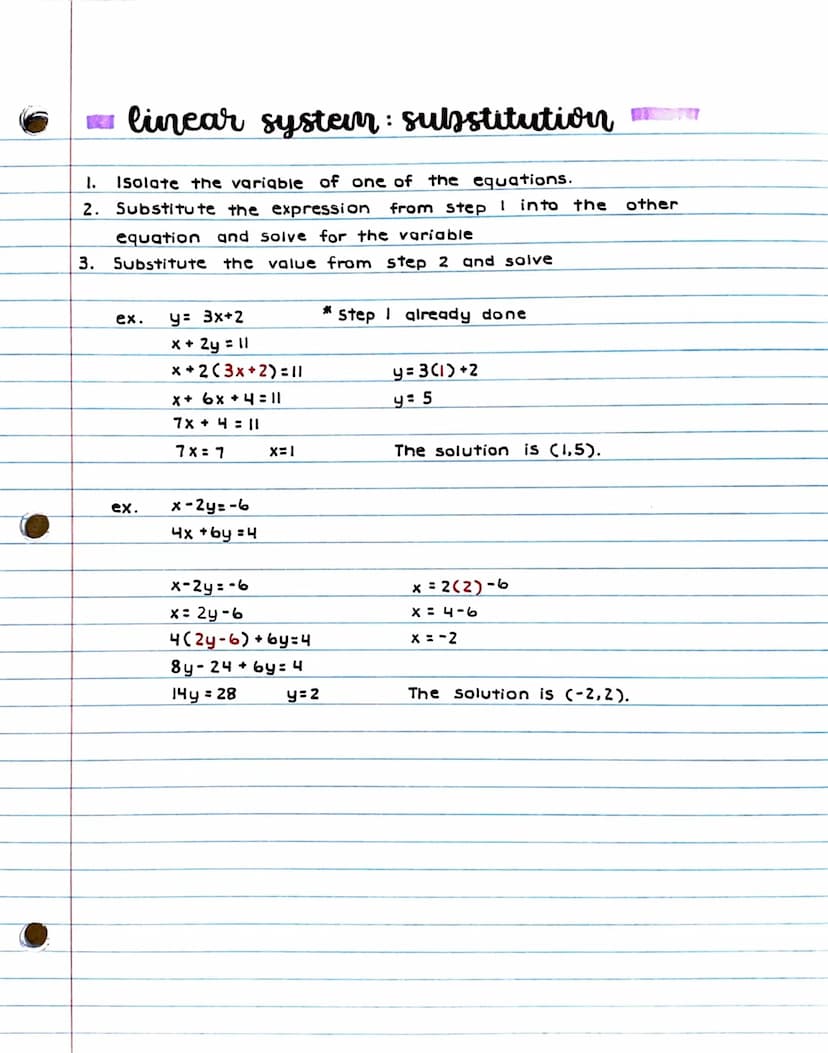 linear system: substitution
1. Isolate the variable of one of the equations.
2. Substitute the expression from step 1 into the other
equation and solve for the variable
3. Substitute the value from step 2 and solve
ex. y = 3x+2 * Step 1 already done
x + 2y = 11
x + 2(3x+2) = 11 y = 3(1) + 2
x + 6x + 4 = 11 y = 5
7x + 4 = 11
7x = 7 x = 1 The solution is (1,5).
ex. x - 2y = -6
4x + 6y = 4
x - 2y = -6 x = 2(2) - 6
x = 2y - 6 x = 4 - 6
4(2y-6) + 6y = 4 x = -2
8y - 24 + 6y = 4
14y = 28 y = 2 The solution is (-2,2).